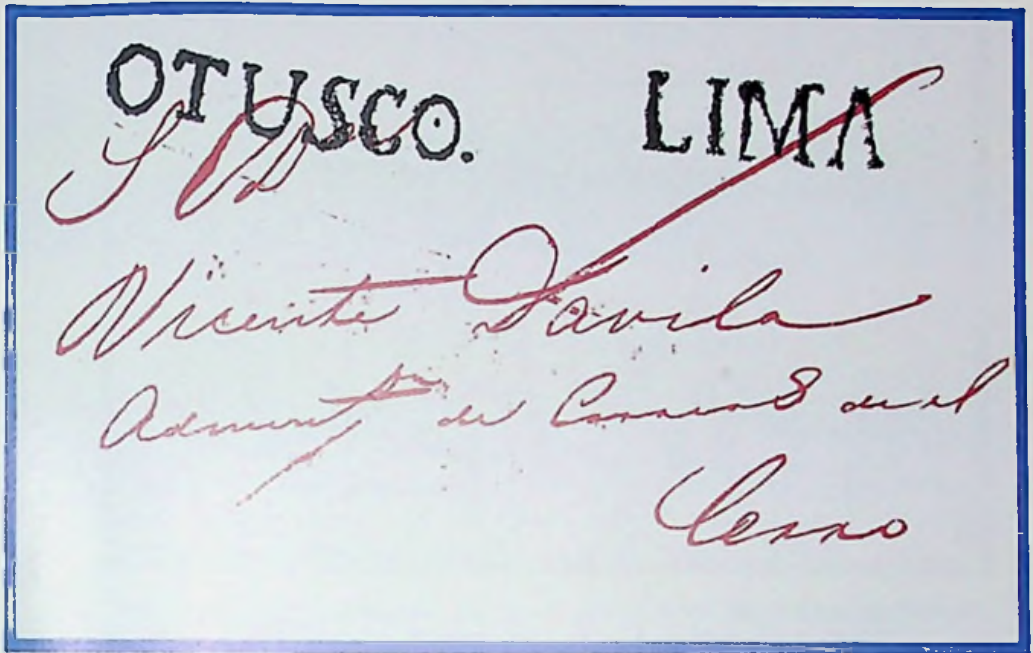 OTUSCO. LIMA
S D
Vicente Davila
Adminr de Correos de el
Cerro